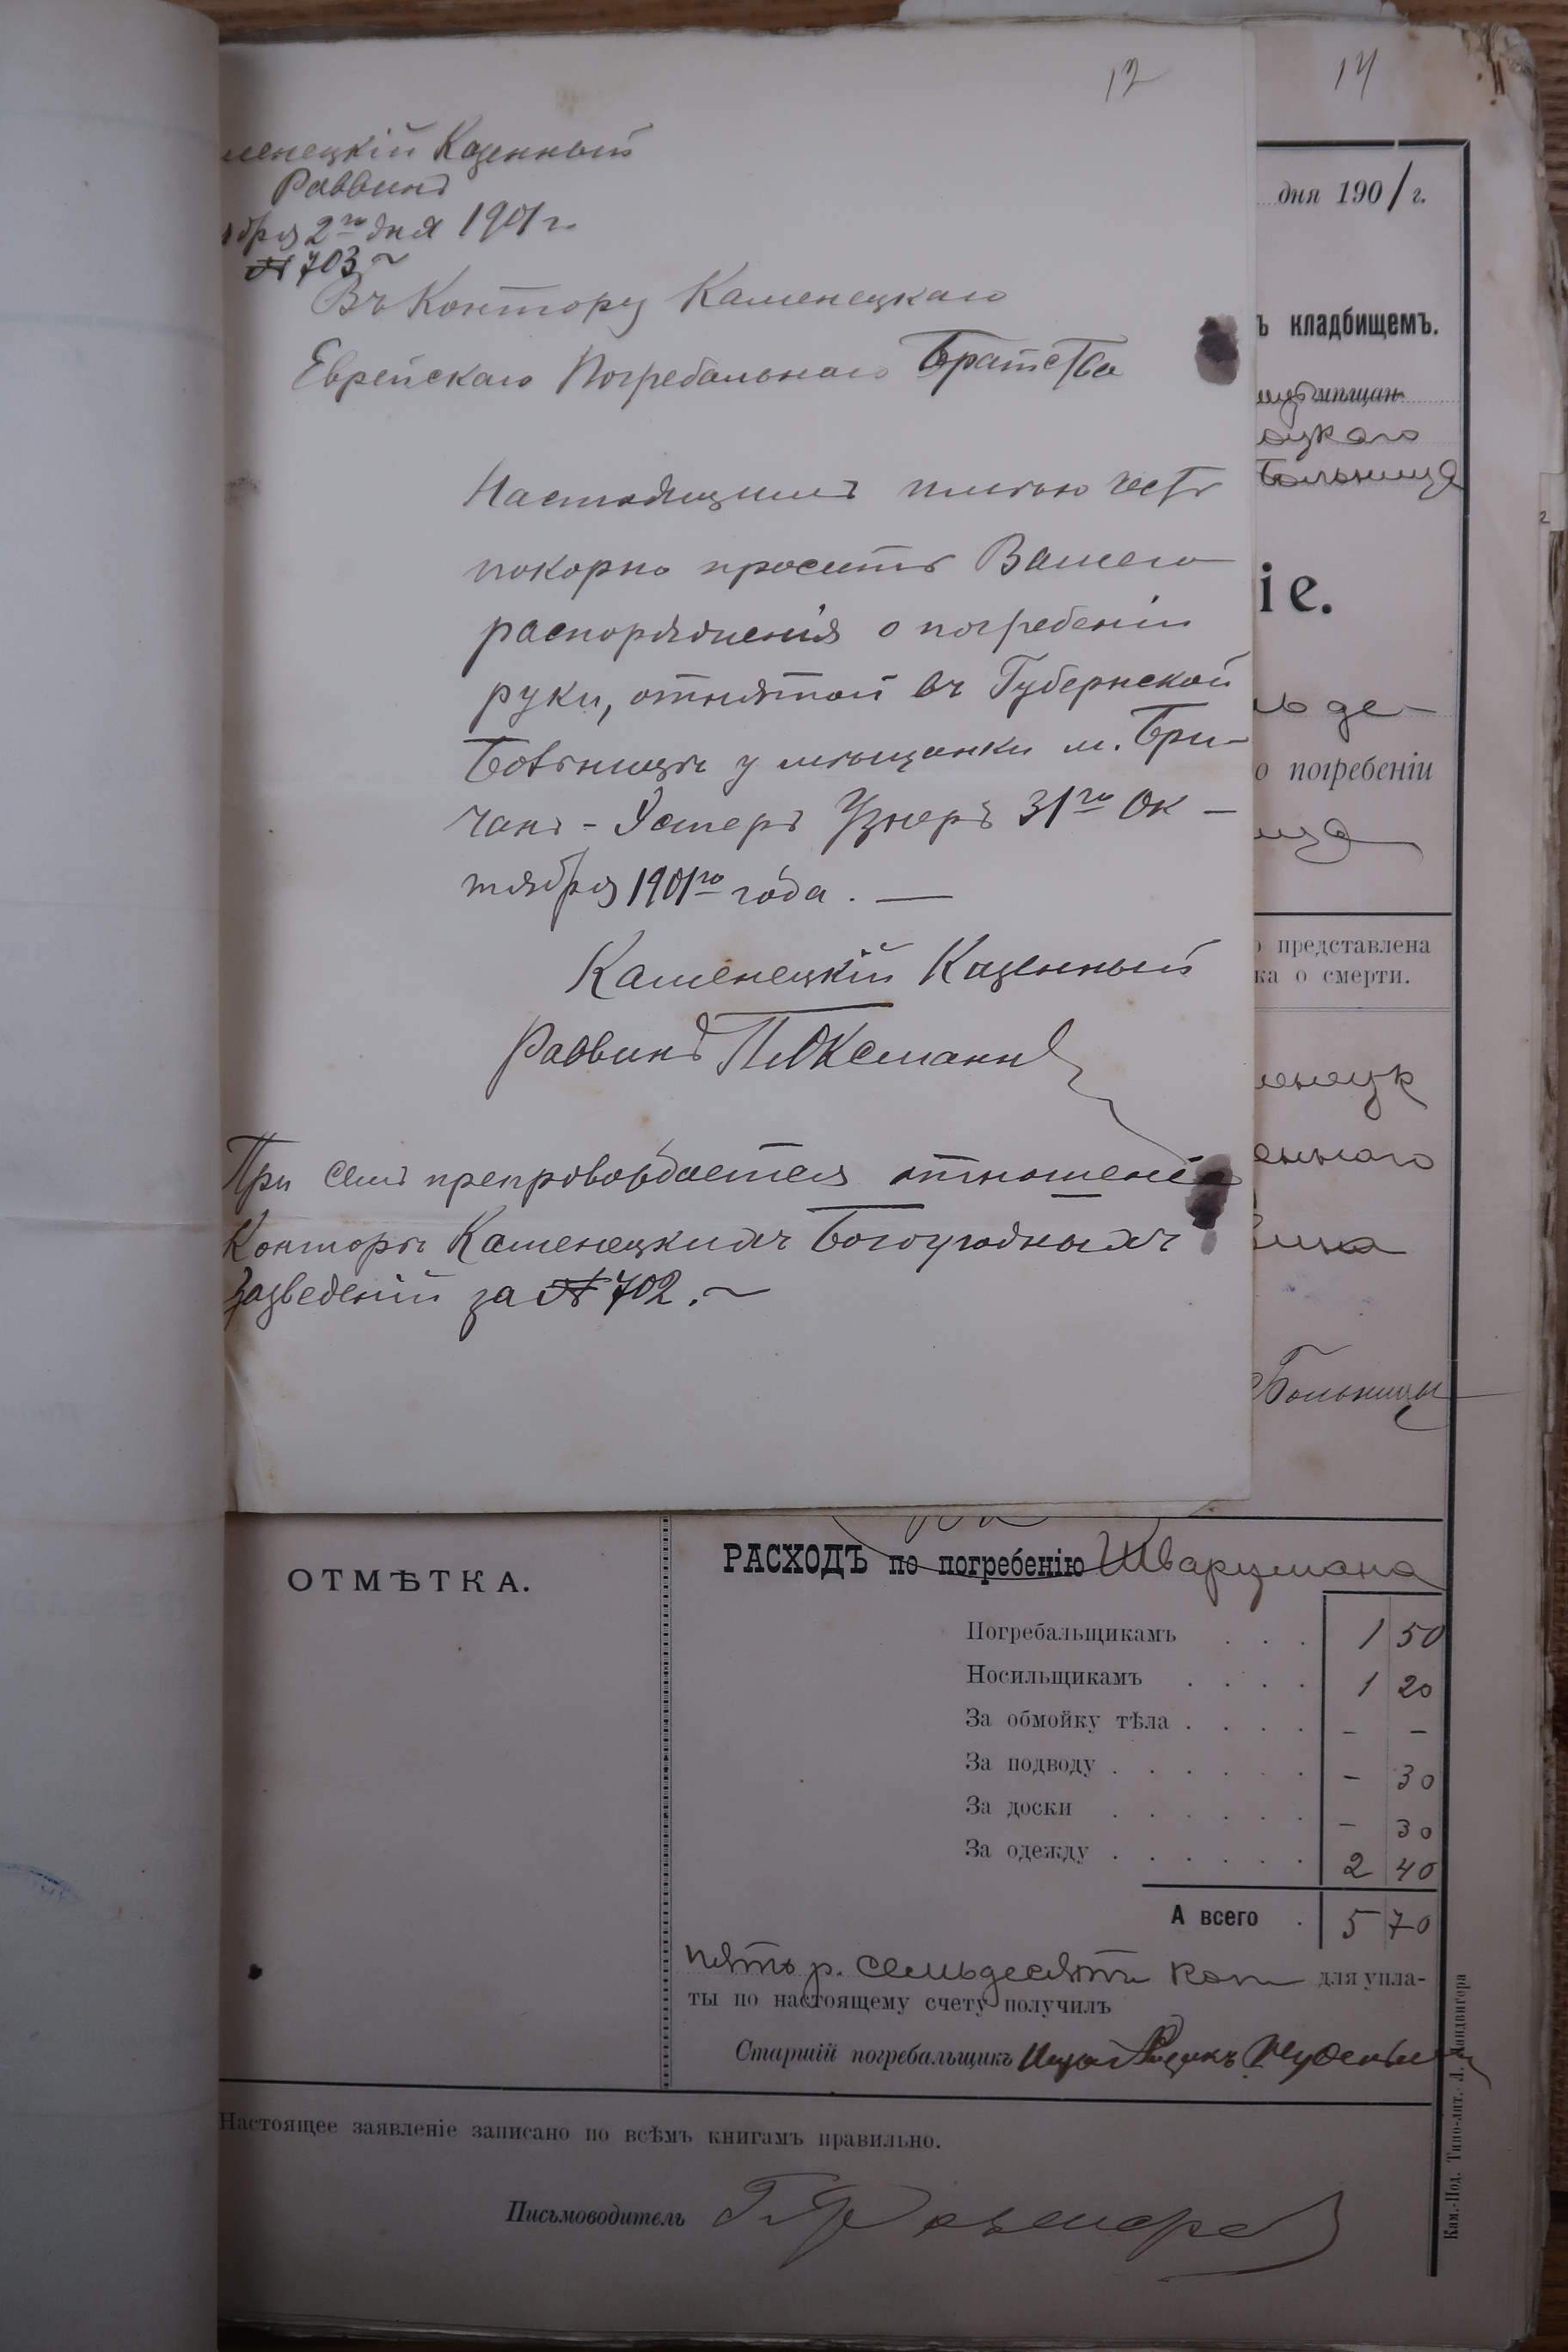 12
менецкій Казенный
Раввинъ
ября 2го дня 1901 г.
№ 703
Въ Контору Каменецкаго
Еврейскаго Погребальнаго Братства
Настоящимъ имѣю честь
покорно просить Вашего
распоряженія о погребеніи
руки, отнятой въ Губернской
Больницѣ у мѣщанки м. Бри-
чанъ - Эстеръ Узнеръ 31го Ок-
тября 1901го года. —
Каменецкій Казенный
Раввинъ
При семъ препровождается отношеніе
Конторы Каменецкихъ Богоугодныхъ
Заведеній за № 702.
14
дня 1901 г.
ъ кладбищемъ.
мѣщан
ецкаго
больница
іе.
ь де-
о погребеніи
о представлена
ка о смерти.
менецк
еннаго
Больницы
ОТМѢТКА.
РАСХОДЪ по погребенію Шварцмана
Погребальщикамъ . . . 1 50
Носильщикамъ . . . . 1 20
За обмойку тѣла . . . . – –
За подводу . . . . . . – 30
За доски . . . . . . – 30
За одежду . . . . . . 2 40
А всего . 5 70
пять р. семьдесять коп для упла-
ты по настоящему счету получилъ
Старшій погребальщикъ
Настоящее заявленіе записано по всѣмъ книгамъ правильно.
Письмоводитель
Кам.-Под. Типо-лит. Л. Ландвигера